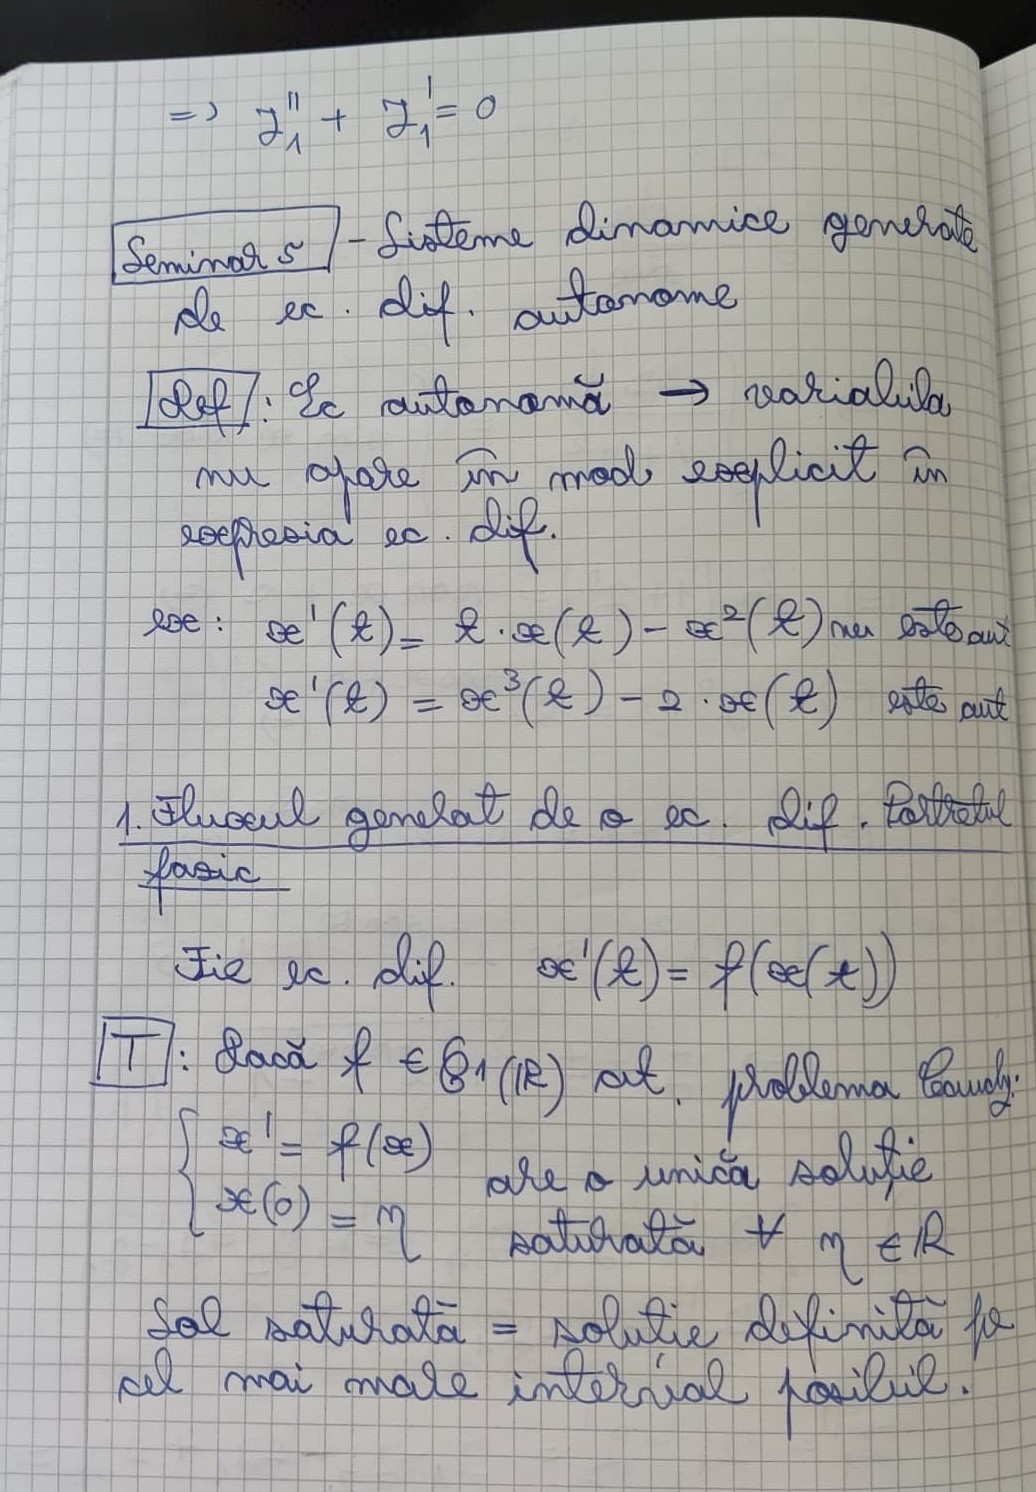 => y₁'' + y₁' = 0
Seminar 5 - Sisteme dinamice generate
de ec. dif. autonome
Def: Ec autonomă → variabila
nu apare în mod explicit în
expresia ec. dif.
ex: x'(t) = t · x(t) - x²(t) nu este aut
x'(t) = x³(t) - 2 · x(t) este aut
1. Fluxul generat de o ec. dif. Portretul
fazic
Fie ec. dif. x'(t) = f(x(t))
T: Dacă f ∈ C1(ℝ) at. problema Cauchy:
{ x' = f(x)
x(0) = η
are o unică soluție
saturată ∀ η ∈ ℝ
Sol saturată = soluție definită pe
cel mai mare interval posibil.